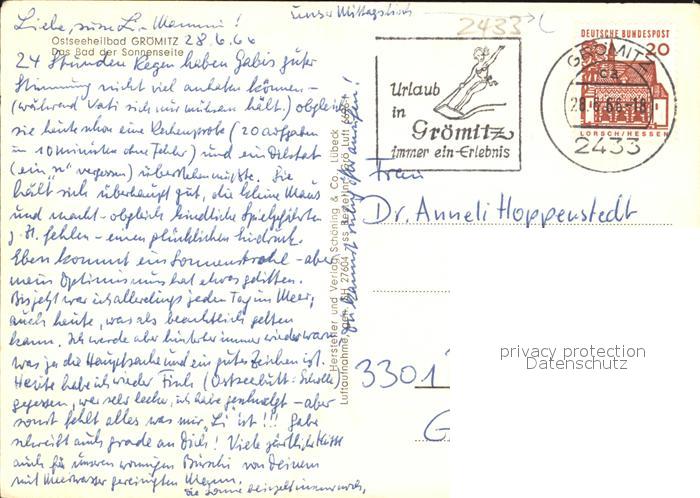 unser Mittagstisch
Liebe, süsse Li-Mammi!
Ostseeheilbad GRÖMITZ 28.6.66
Das Bad der Sonnenseite
24 Stunden Regen haben Gabis guter
Stimmung nicht viel anhaben können –
(während Vati sich nur mühsam hält.) obgleich
sie heute schon eine Rechenprobe (20 Aufgaben
in 10 Minuten ohne Fehler) und ein Diktat
(ein "n" vergessen) überstehen musste. Sie
hält sich überhaupt gut, die kleine Maus
und macht – obgleich kindliche Spielgefährten
z. Zt. fehlen – einen glücklichen Eindruck.
Eben kommt ein Sonnenstrahl – aber
mein Optimismus hat etwas gelitten.
Bis jetzt war ich allerdings jeden Tag im Meer,
auch heute, was als beachtlich gelten
kann. Ich werde aber hinterher immer wieder warm
was ja die Hauptsache und ein gutes Zeichen ist.
Heute habe ich wieder Fisch (Ostseebutt: Scholle)
gegessen, war sehr lecker, ich habe geschwelgt – aber
sonst fehlt alles was mir "Li" ist!!! Gabi
schreibt auch grade an Dich! Viele zärtliche Küsse
auch für unseren wonnigen Burschi von Deinem
mit Meerwasser gereinigten
die Sonne
Du kannst
Hersteller und Verlag Schöning & Co., Lübeck
Luftaufnahme, freig. SH 27604
2433
Urlaub
in
Grömitz
immer ein Erlebnis
GRÖMITZ
ca
28.6.66-18
2433
DEUTSCHE BUNDESPOST
20
LORSCH/HESSEN
Frau
Dr. Anneli Hoppenstedt
3301
G
privacy protection
Datenschutz